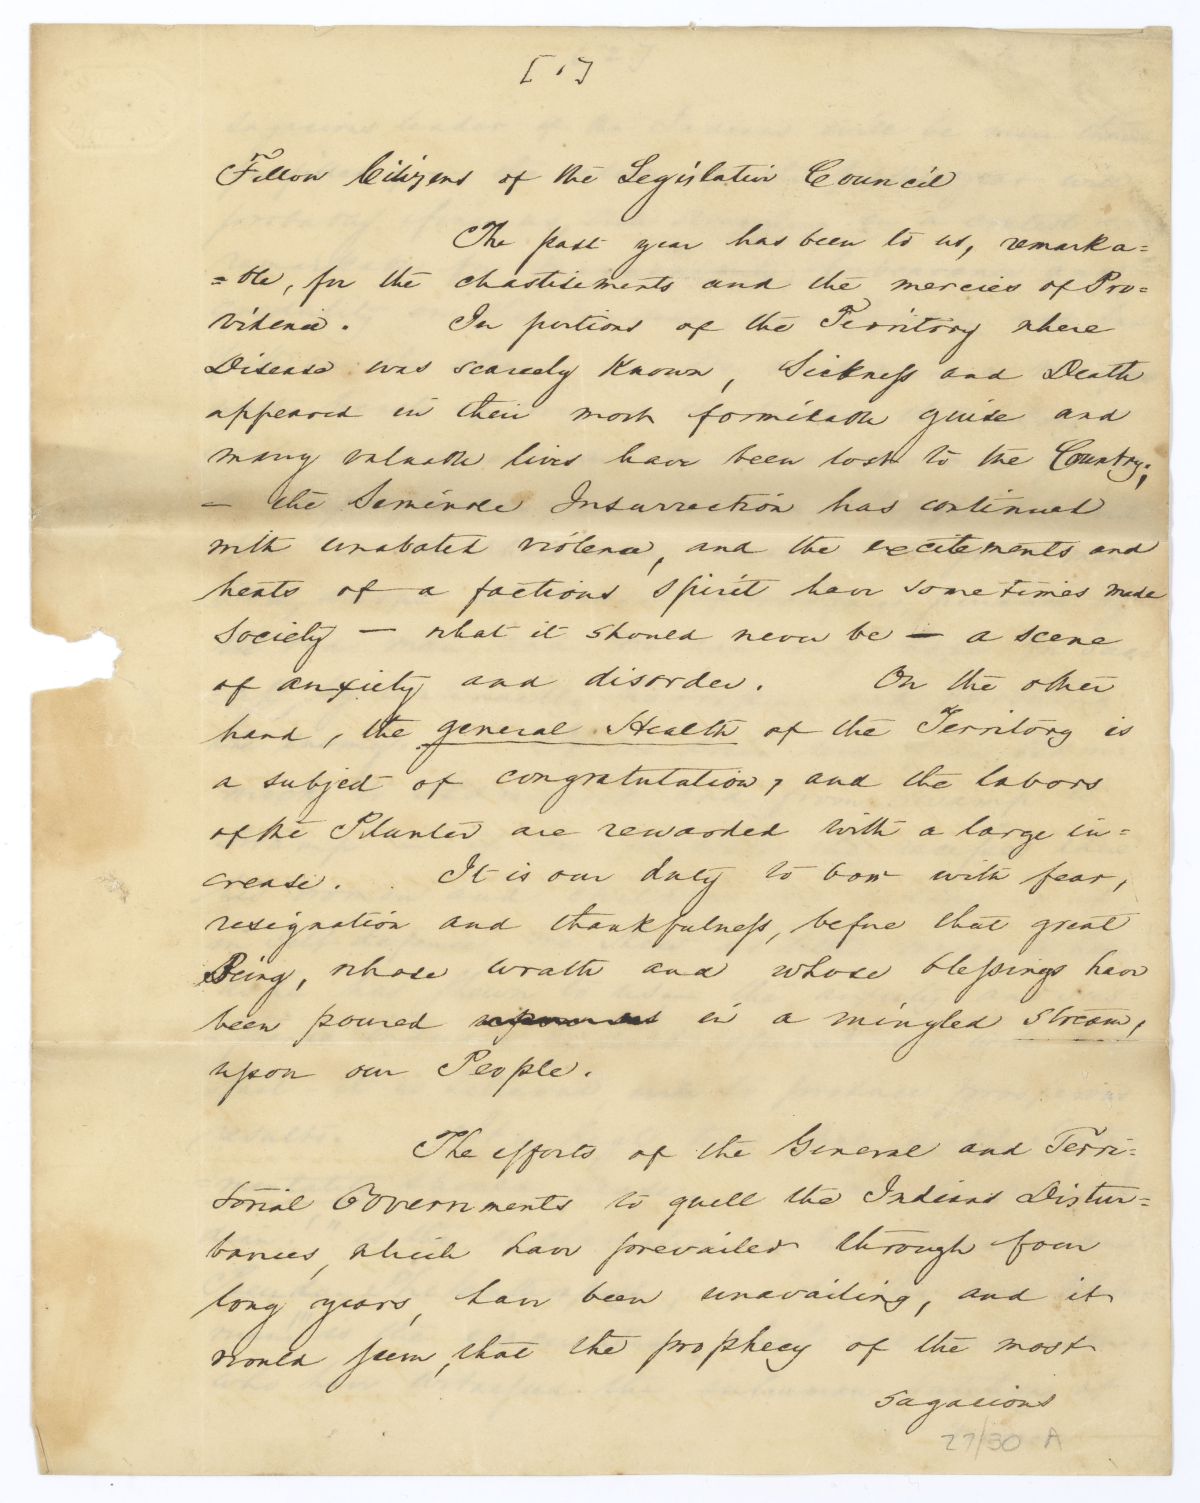 [1]
Fellow Citizens of the Legislative Council
The past year has been to us, remarka=
=ble, for the chastisements and the mercies of Pro=
vidence. In portions of the Territory where
Disease was scarcely Known, Sickness and Death
appeared in their most formidable guise and
many valuable lives have been lost to the Country;
— the Seminole Insurrection has continued
with unabated violence, and the excitements and
heats of a factious spirit have sometimes made
Society — what it should never be — a scene
of anxiety and disorder. On the other
hand, the general Health of the Territory is
a subject of congratulation, and the labors
of the Planter are rewarded with a large in=
crease. It is our duty to bow with fear,
resignation and thankfulness, before that great
Being, whose wrath and whose blessings have
been poured upon us in a mingled stream,
upon our People.
The efforts of the General and Terri=
torial Governments to quell the Indians Distur=
bances, which have prevailed through four
long years, have been unavailing, and it
would seem, that the prophecy of the most
sagacious
27/30 A